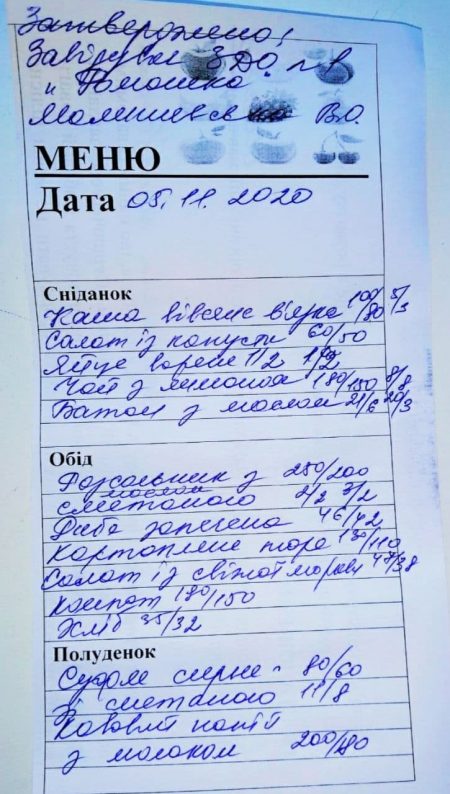 Затверджено!
Завідувач ЗДО п-в
"Ромашка"
В.О.
МЕНЮ
Дата 05.11.2020
Сніданок
Каша вівсяна в'язка 100/80 5/3
Салат із капусти 60/50
Яйце варене 1/2 1/2
Чай з лимоном 180/150 8/8
Батон з маслом 21/6 20/3
Обід
Розсольник з 250/200
маслом
сметаною 2/2 3/2
Риба запечена 46/42
Картопляне пюре 130/110
Салат із свіжої моркви 47/38
Компот 180/150
Хліб 35/32
Полуденок
Суфле сирне 80/60
Зі сметаною 11/8
Кавовий напій
з молоком 200/180